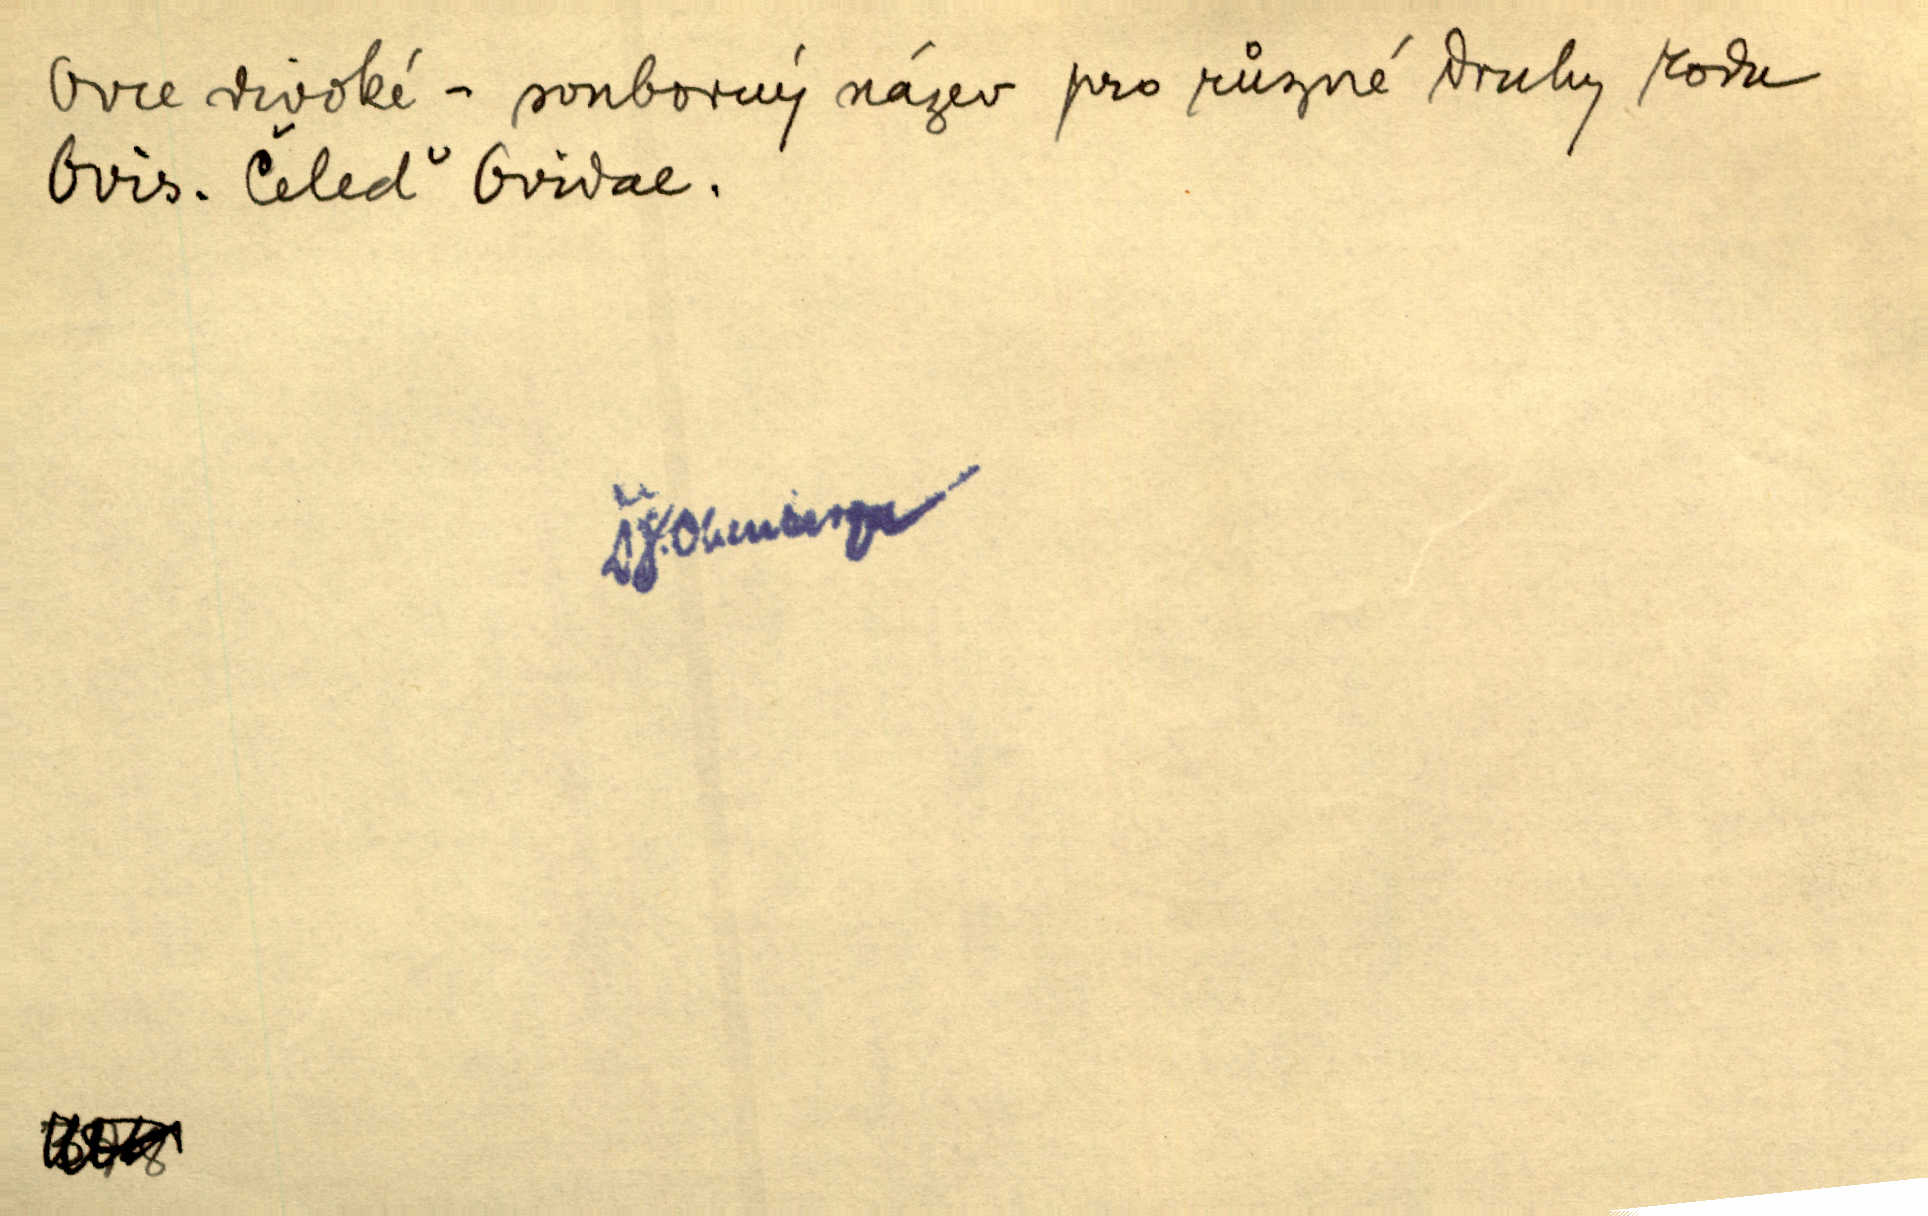 Ovce divoké - souborný název pro různé druhy rodu
Ovis. Čeleď Ovidae.
J. Obenberger